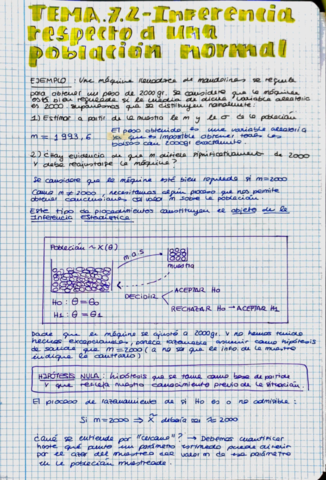 TEMA.7.2-Inferencia
respecto a una
población normal
EJEMPLO: Una máquina envasadora de mandarinas se regula
para obtener un peso de 2000gr. Se considera que la máquina
está bien regulada si la media de dicha variable aleatoria
es 2000. Suponemos que se distribuyen normalmente.
1) Estimar a partir de la muestra la m y la σ de la población
m = 1993,6
El peso obtenido es una variable aleatoria
ya que es imposible obtener todas las
bolsas con 2000gr exactamente.
2) ¿Hay evidencia de que m difiera significativamente de 2000
y deba reajustarse la máquina?
Se considera que la máquina está bien regulada si m=2000
Como m ≠ 2000, necesitamos algún proceso que nos permita
obtener conclusiones del valor m sobre la población.
Este tipo de procedimientos constituyen el objeto de la
Inferencia Estadística
Población ~ X(θ)
m.a.s
muestra
Decidir
ACEPTAR Ho
RECHAZAR Ho → ACEPTAR H1
Ho: θ = θo
H1: θ = θ1
Dado que la máquina se ajustó a 2000gr. y no hemos tenido
hechos excepcionales, parece razonable asumir como hipótesis
de salida que m=2000 (a no ser que los datos de la muestra
indique lo contrario)
HIPÓTESIS NULA: hipótesis que se toma como base de partida
y que refleja nuestro conocimiento previo de la situación.
El proceso de razonamiento de si Ho es o no admisible:
Si m=2000 ⇒ debería ser ≈ 2000
¿Qué se entiende por "cercano"? → Debemos cuantificar
hasta qué punto un parámetro estimado puede diferir
por el azar del muestreo del valor m de ese parámetro
en la población muestreada.